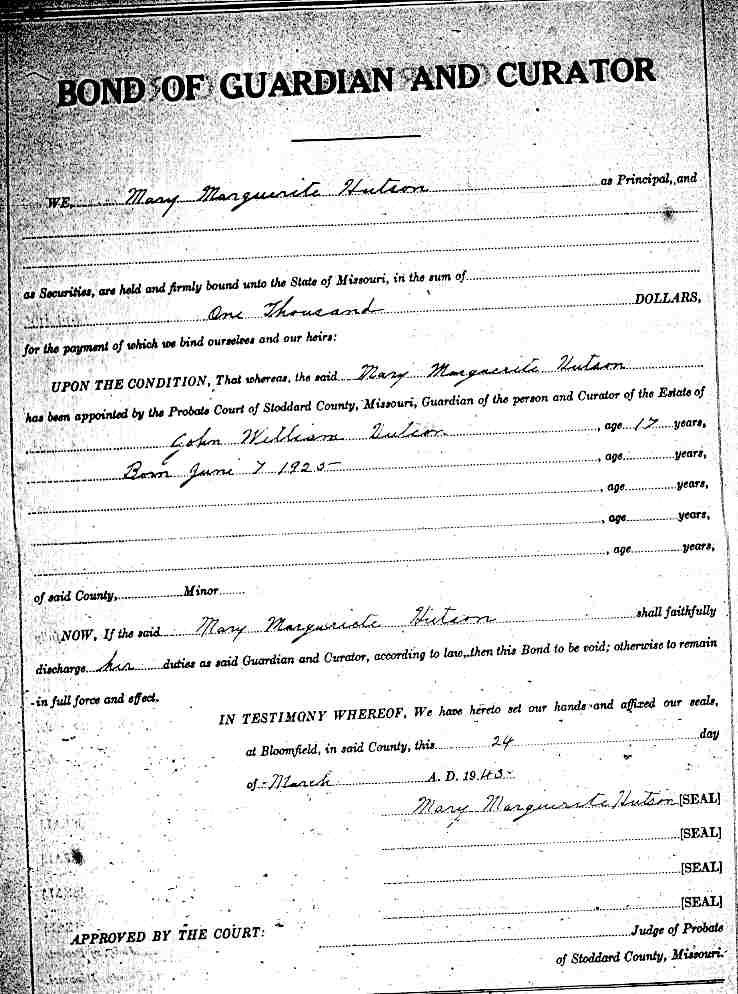 BOND OF GUARDIAN AND CURATOR
WE, Mary Marguerite Hutson as Principal, and
as Securities, are held and firmly bound unto the State of Missouri, in the sum of
One Thousand DOLLARS,
for the payment of which we bind ourselves and our heirs:
UPON THE CONDITION, That whereas, the said Mary Marguerite Hutson
has been appointed by the Probate Court of Stoddard County, Missouri, Guardian of the person and Curator of the Estate of
John William Hutson, age 17 years,
Born June 7 1925, age years,
, age years,
, age years,
, age years,
of said County, Minor
NOW, If the said Mary Marguriete Hutson shall faithfully
discharge her duties as said Guardian and Curator, according to law, then this Bond to be void; otherwise to remain
in full force and effect.
IN TESTIMONY WHEREOF, We have hereto set our hands and affixed our seals,
at Bloomfield, in said County, this 24 day
of March A. D. 1943
Mary Marguerite Hutson [SEAL]
[SEAL]
[SEAL]
[SEAL]
APPROVED BY THE COURT:
Judge of Probate
of Stoddard County, Missouri.